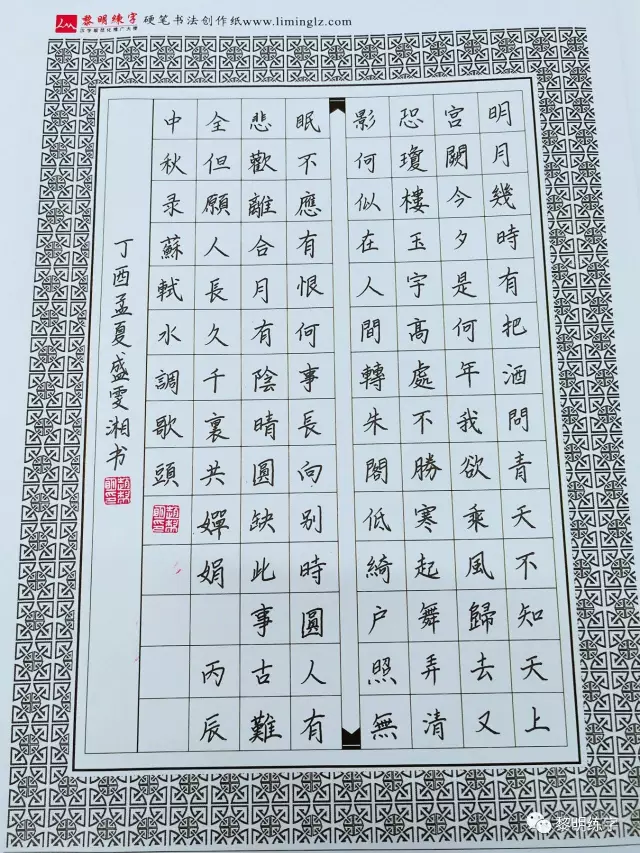 黎明練字
硬笔书法创作纸www.liminglz.com
明月幾時有把酒問青天不知天上
宮闕今夕是何年我欲乘風歸去又
恐瓊樓玉宇高處不勝寒起舞弄清
影何似在人間轉朱閣低綺户照無
眠不應有恨何事長向别時圓人有
悲歡離合月有陰晴圓缺此事古難
全但願人長久千裏共嬋娟 丙辰
中秋录蘇軾水調歌頭
丁酉孟夏盛雯湘书
黎明练字